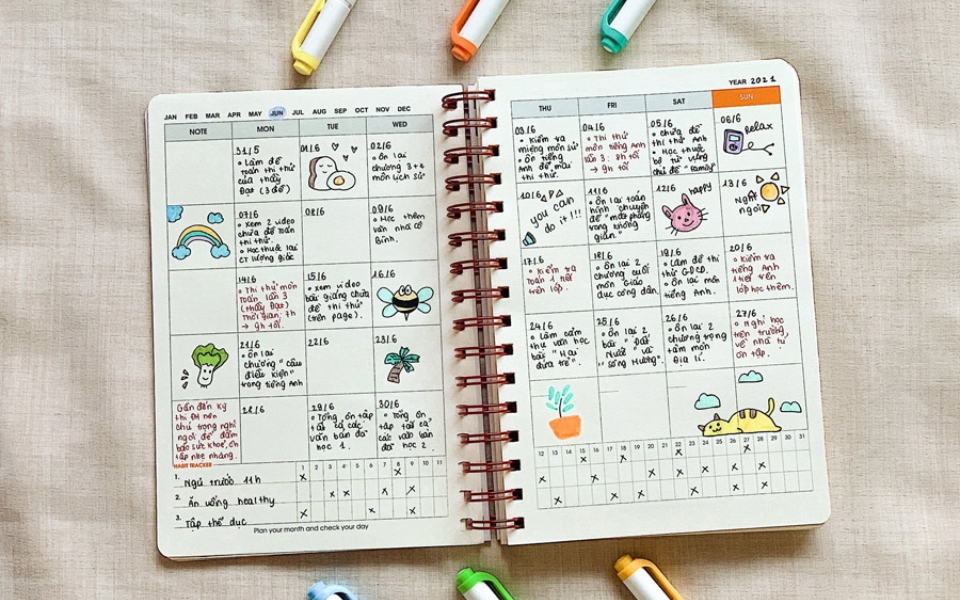 JAN FEB MAR APR MAY JUN JUL AUG SEP OCT NOV DEC
NOTE MON TUE WED
31/5
• Làm đề
toán thi thử
của thầy
Đạo (3 đề)
01/6
02/6
• Ôn lại
chương 3+4
môn lịch sử
07/6
• xem video
chữa đề toán
thi thử.
• Học thuộc lại
CT lượng giác
08/6
09/6
• Học thêm
văn nhà cô
Bình.
14/6
• Thi thử môn
toán lần 3
(thầy Đạo)
Thời gian: 7h
→ 9h tối.
15/6
• xem video
bài giảng chữa
đề thi thử
(trên page).
16/6
21/6
• ôn lại
chương "câu
điều kiện"
trong tiếng anh
22/6
23/6
Gần đến kỳ
thi ĐH nên
chú trọng nghỉ
ngơi để đảm
bảo sức khoẻ, ôn
tập nhẹ nhàng.
28/6
29/6
• Tổng ôn tập
tất cả các
văn bản đã
học 1.
30/6
• Tổng ôn
tập tất cả
các văn bản
đã học 2.
HABIT TRACKER
1 2 3 4 5 6 7 8 9 10 11
1. Ngủ trước 11h
2. Ăn uống healthy
3. Tập thể dục
Plan your month and check your day
YEAR 2021
THU FRI SAT SUN
03/6
• Kiểm tra
miệng môn sử
• Ôn tiếng
Anh để mai
thi thử.
04/6
• Thi thử
môn tiếng Anh
lần 3: 8h tối
→ 9h tối
05/6
• chữa đề
thi thử Anh
• Học thuộc
bộ từ vựng
chủ đề "family"
06/6
Relax
10/6
you can
do it!!!
11/6
• Ôn lại toán
hình chuyên
đề "mặt phẳng
trong không
gian"
12/6
happy
13/6
Nghỉ
ngơi
17/6
• Kiểm tra
toán 1 tiết
trên lớp.
18/6
• Ôn lại 2
chương cuối
môn Giáo
dục công dân
19/6
• Làm đề thi
thử GDCD.
• Ôn lại môn
tiếng Anh.
20/6
• Kiểm tra
tiếng Anh
1 tiết trên
lớp học thêm.
24/6
• Làm
thu văn học
bài "Hai
đứa trẻ".
25/6
• Ôn lại 2
bài "Đất
Nước" và
"sông Hương".
26/6
• Ôn lại 2
chương trọng
tâm môn
Địa lí.
27/6
• Nghỉ học
trên trường,
về nhà tự
ôn tập.
12 13 14 15 16 17 18 19 20 21 22 23 24 25 26 27 28 29 30 31